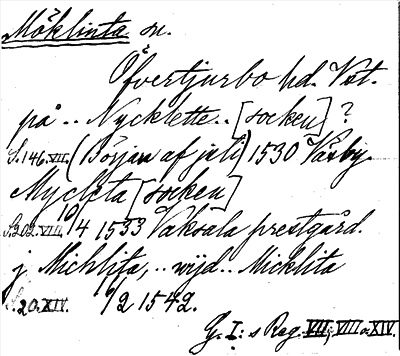 Möklinta sn.
Öfvertjurbo hd. Vst.
på .. Nycklette .. [socken] ?
S. 146. VII. (Början af juli) 1530 Väsby.
Mycketa [socken]
S. 202. VIII. 10/4 1533 Vaksala prestgård.
j Michlita, .. wijd .. Micklita
S. 20. XIV. 6/2 1542.
G. I:s Reg. VII, VIII o. XIV.